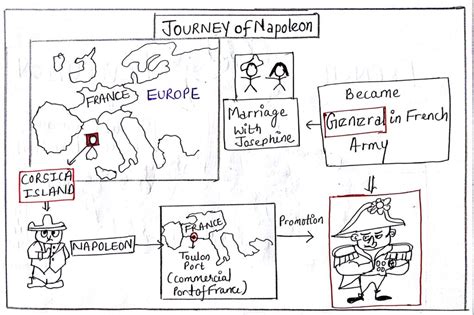 JOURNEY of Napoleon
FRANCE
EUROPE
CORSICA
ISLAND
NAPOLEON
FRANCE
Toulon
Port
(commercial
Port of France)
Promotion
Became
General in French
Army
Marriage
with
Josephine